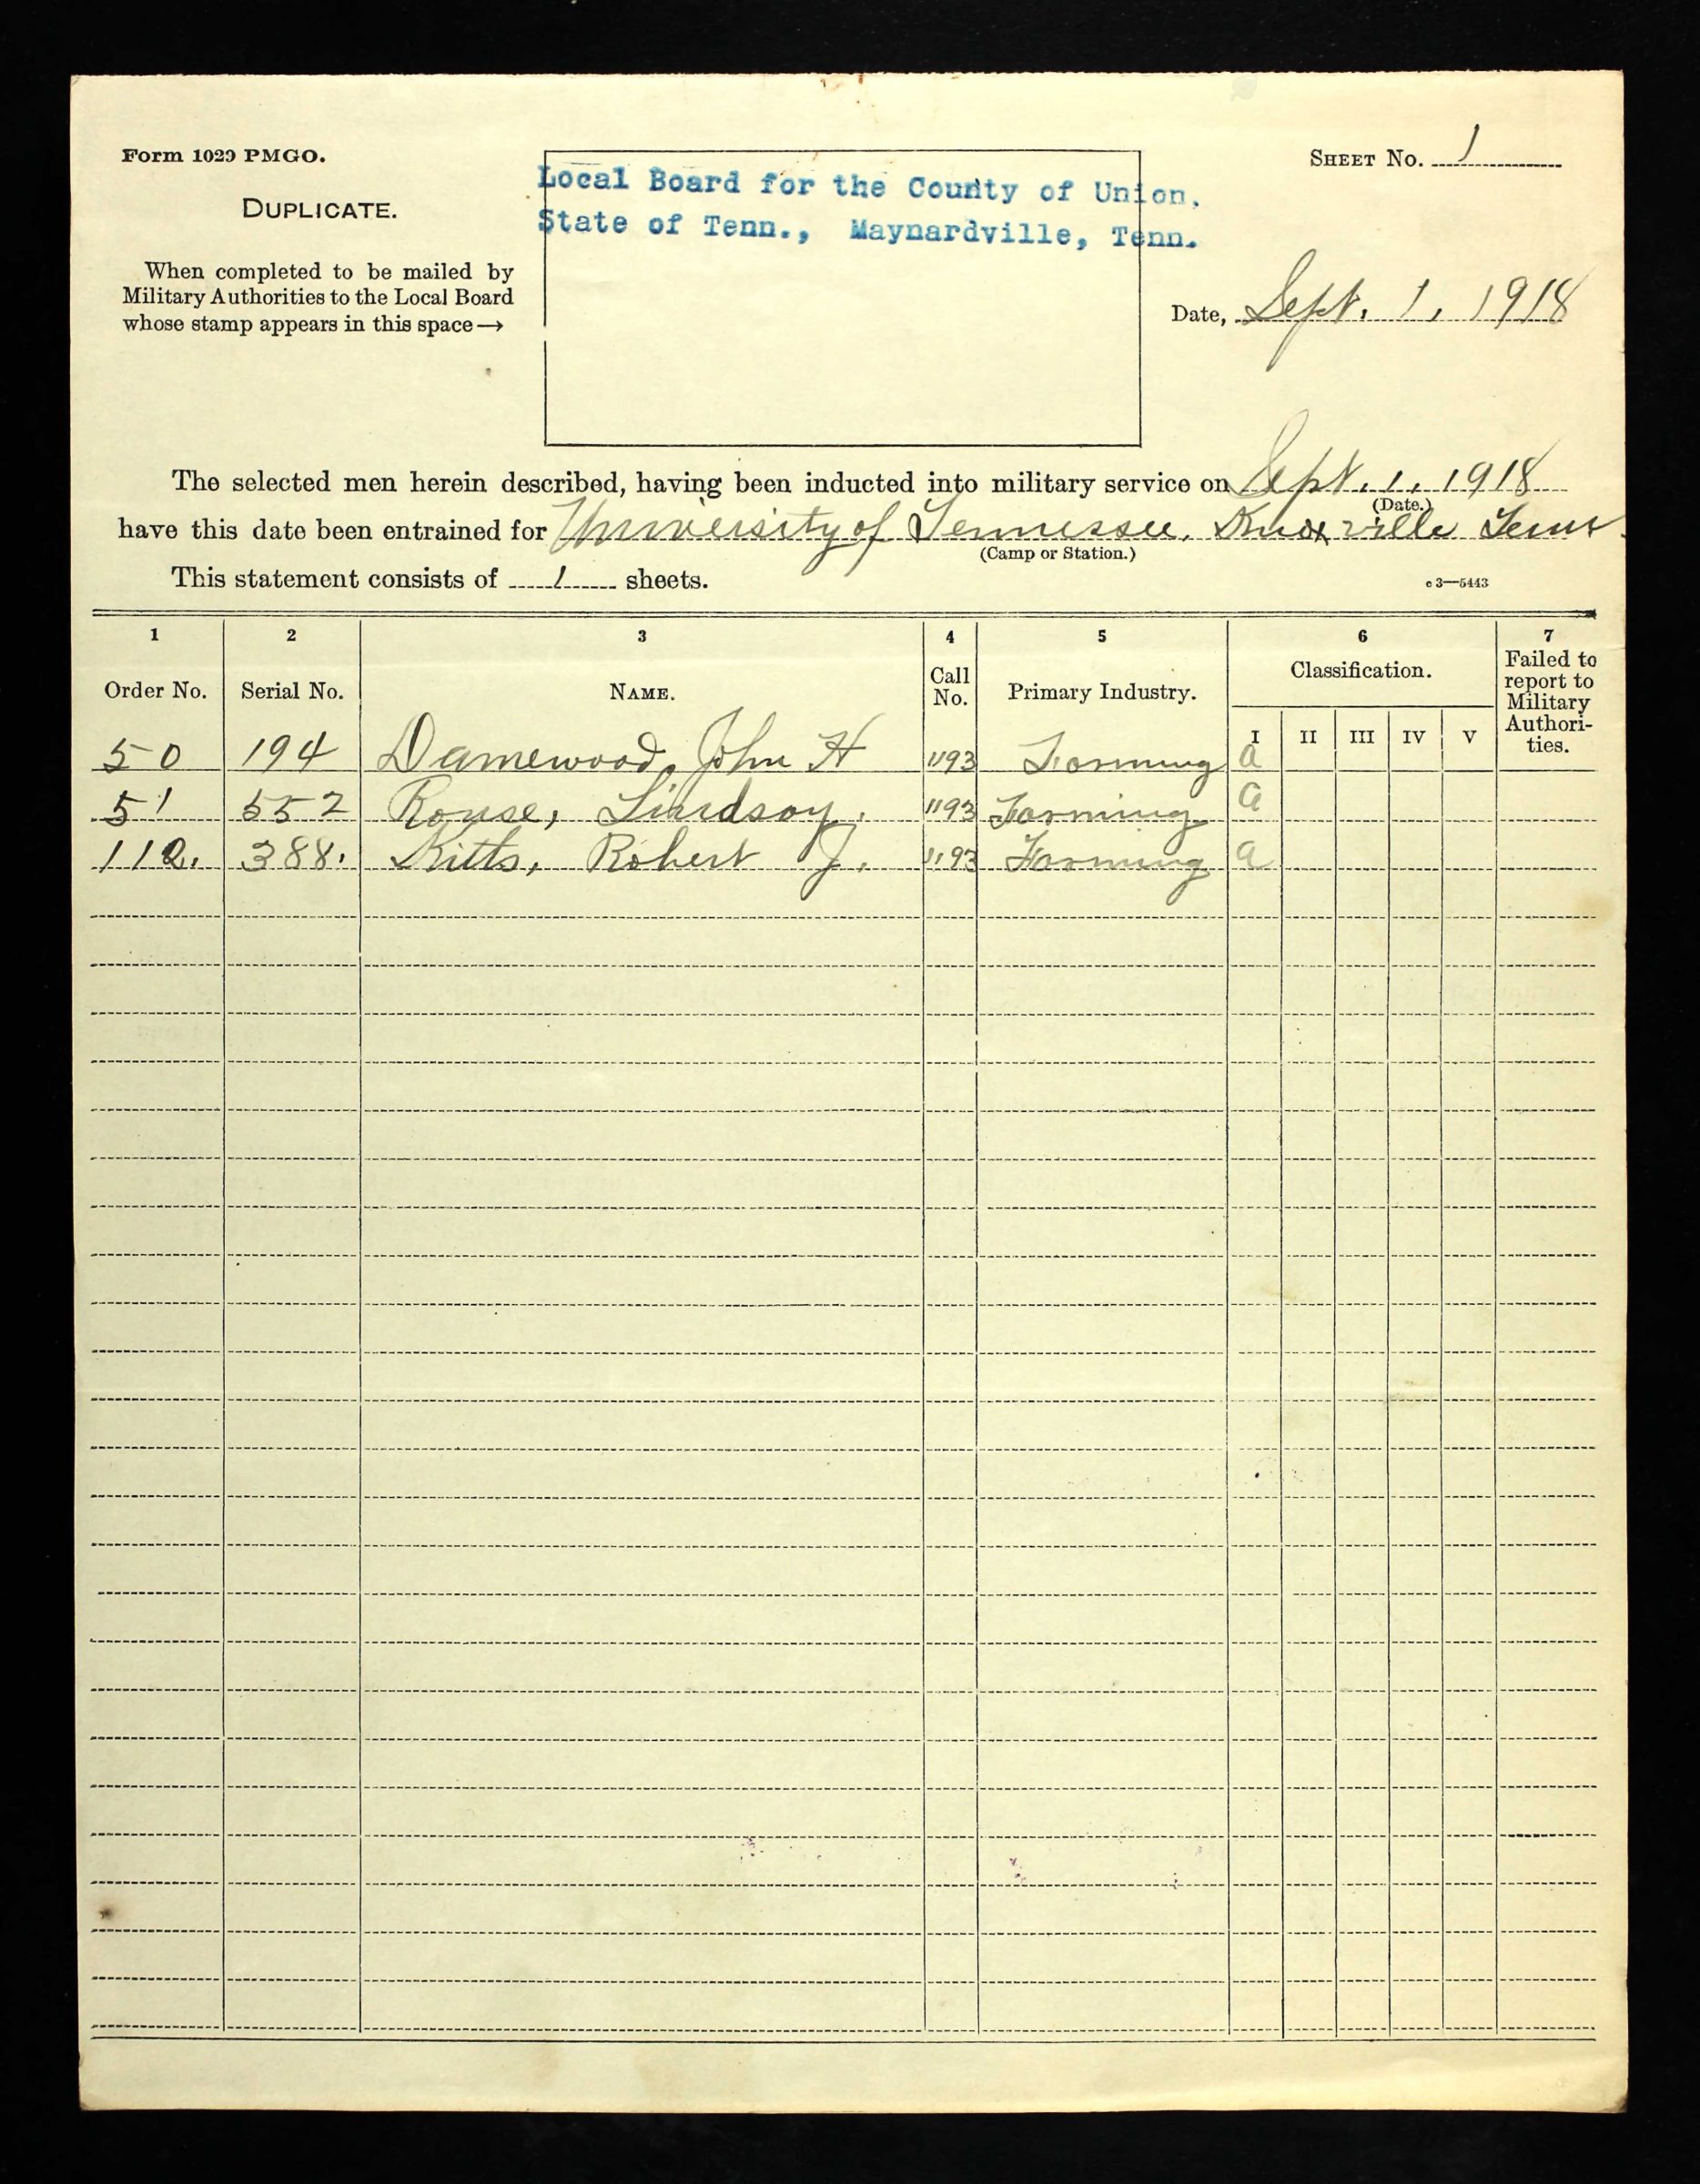 Form 1029 PMGO.
DUPLICATE.
When completed to be mailed by
Military Authorities to the Local Board
whose stamp appears in this space→
Local Board for the County of Union,
State of Tenn., Maynardville, Tenn.
SHEET No. 1
Date, Sept. 1, 1918
The selected men herein described, having been inducted into military service on Sept. 1, 1918
(Date.)
have this date been entrained for University of Tennessee, Knoxville Tenn.
(Camp or Station.)
This statement consists of 1 sheets.
c3—5443
1 2 3 4 5 6 7
Order No. Serial No. NAME. Call No. Primary Industry. Classification. Failed to report to Military Authori-ties.
I II III IV V
50 194 Damewood, John H 1193 Farming a
51 552 Rouse, Lindsay. 1193 Farming a
112. 388. Kitts, Robert J. 1193 Farming a